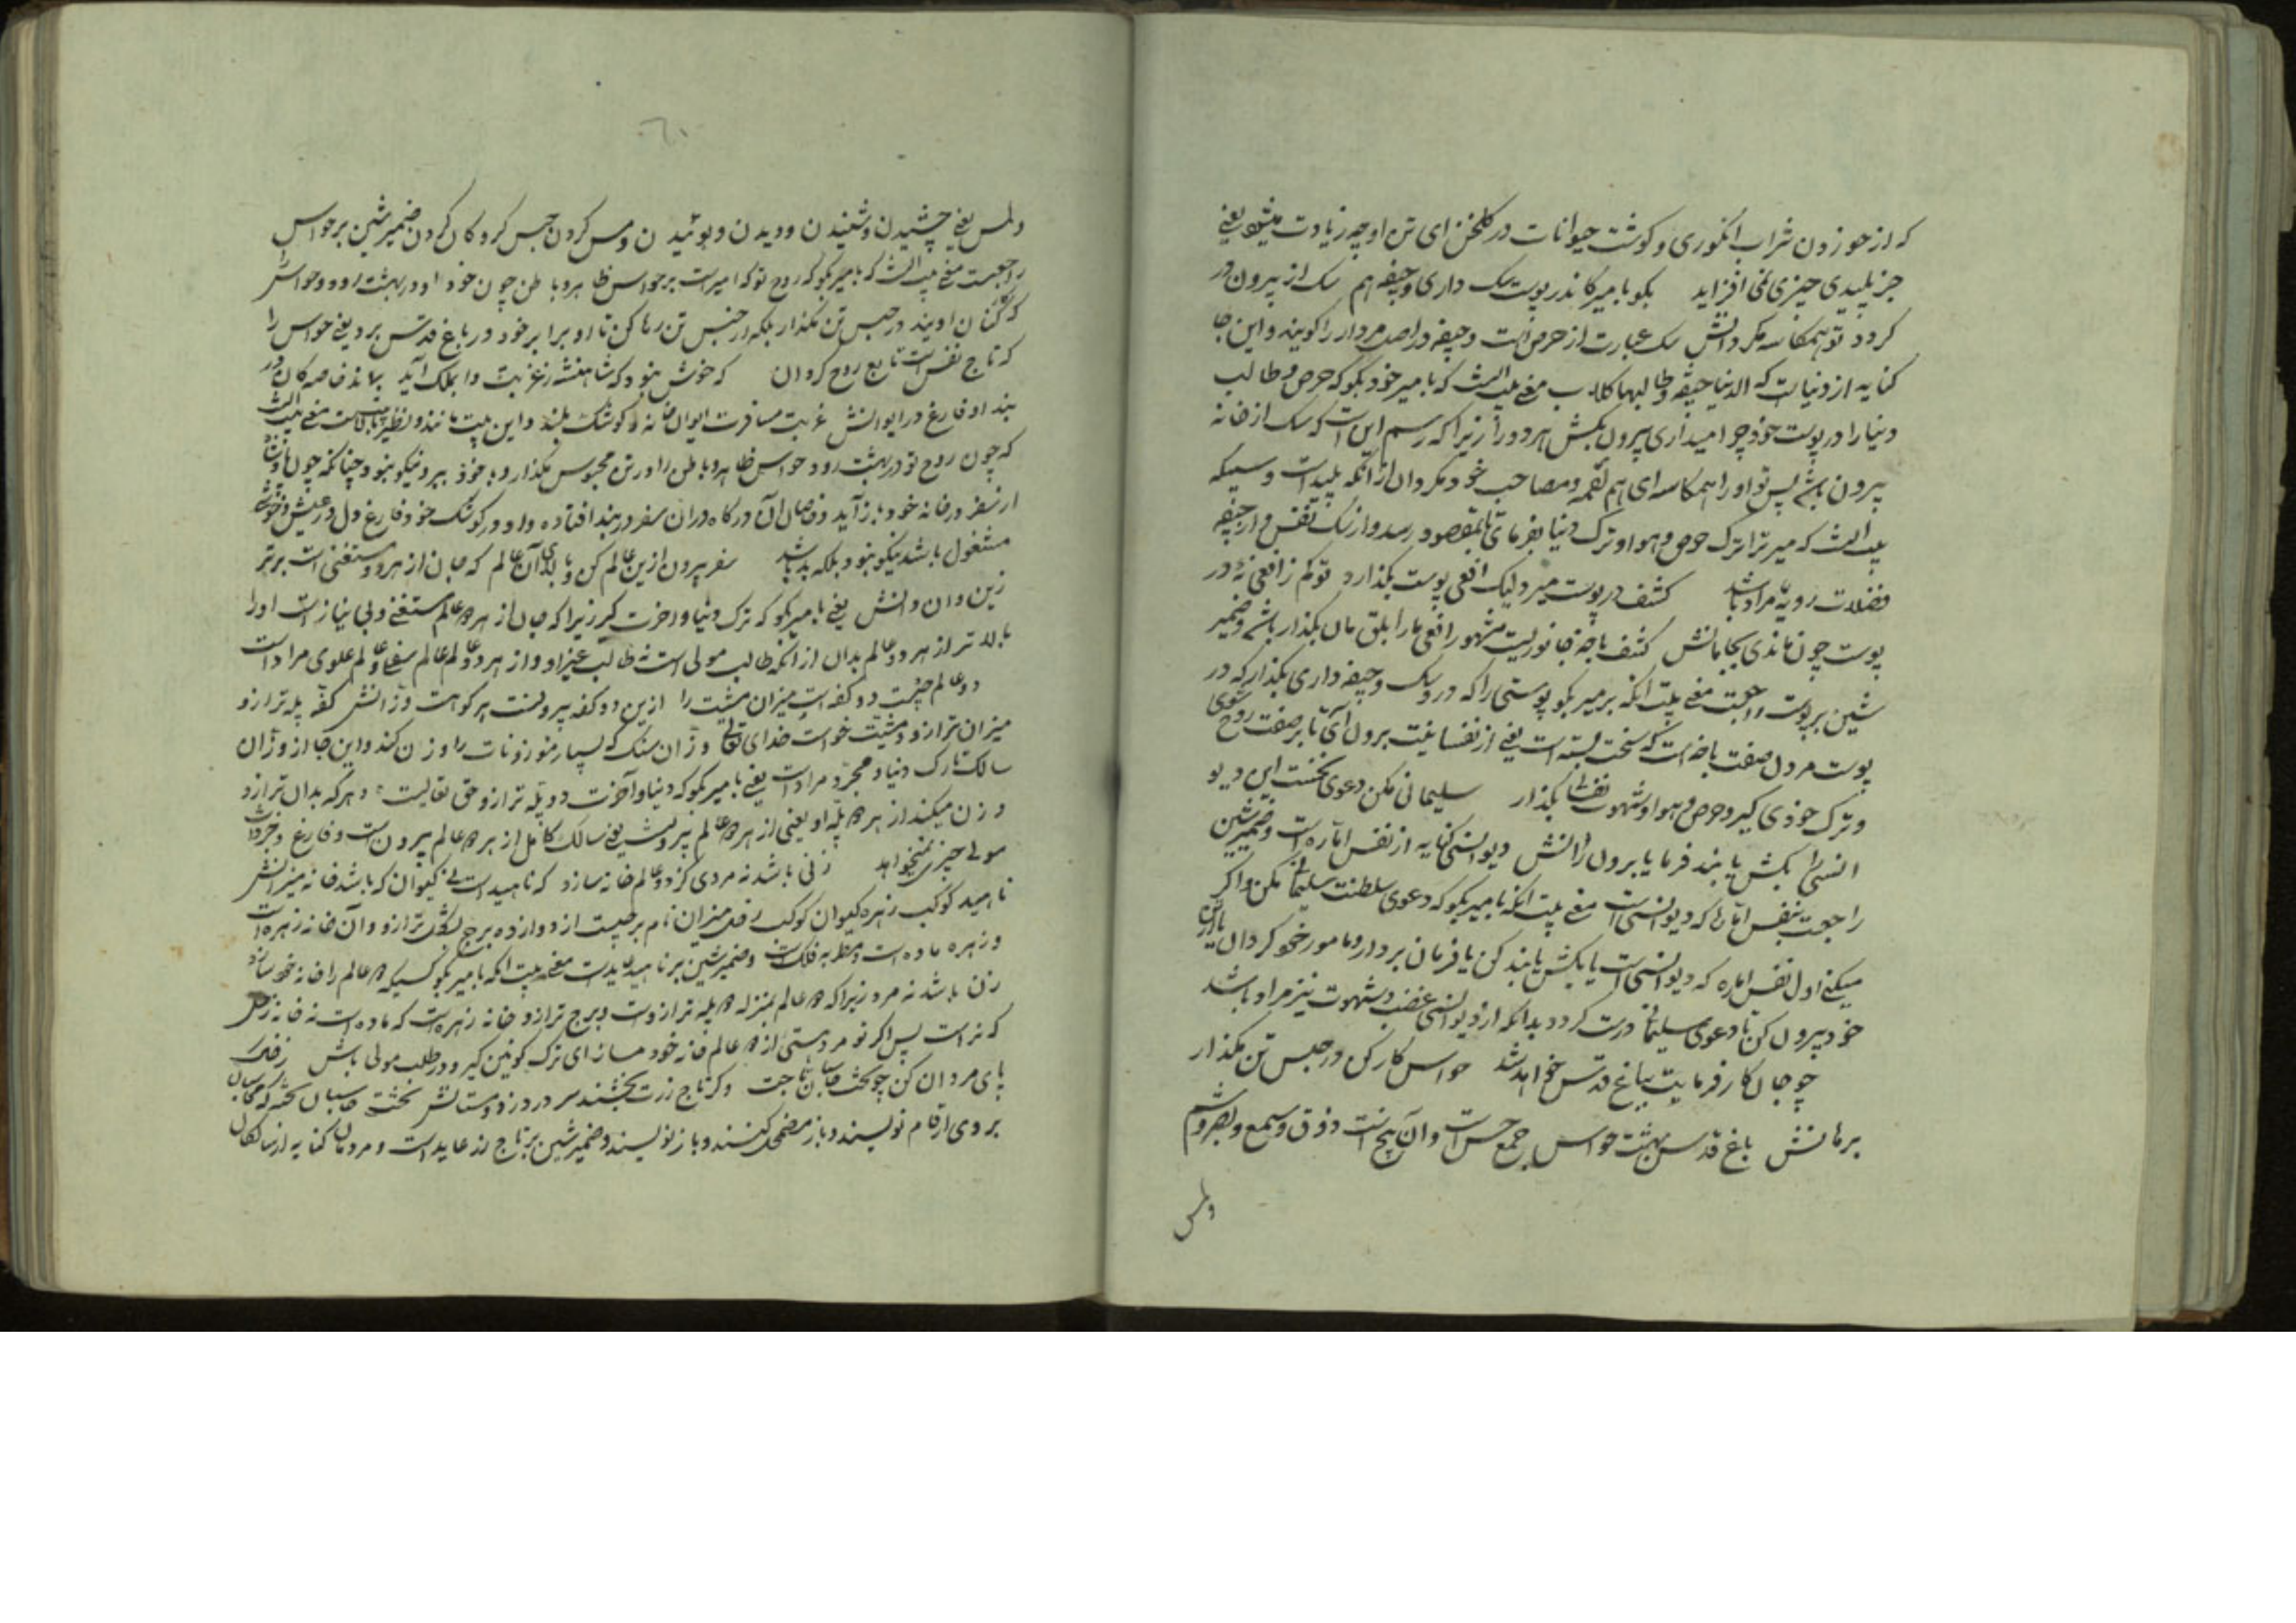 که از خوردن شراب انگوری و کوشت حیوانات در کلخن ای تن او چه زیادت میشود یعنی
جز پلیدی چیزی نمی افزاید بکو با میر کاندر پوست سک داری و جیفه هم سک از بیرون در
کردد تو همکاسه مکردانش سک عبارت از حرص است و جیفه در اصل مردار را کویند و این جا
کنایه از دنیاست که الدنیا جیفة و طالبها کلاب معنی بیت انست که با میر خود بکو که حرص و طالب
دنیا را در پوست خود چرا میداری بیرون بکش هر دو را زیرا که رسم این است که سک از خانه
بیرون باشد پس تو او را همکاسه ای هم لقمه و مصاحب خود مکردان از انکه پلید است و سیکه
بیت انست که میر ترا ترک حرص و هوا و ترک دنیا بفرمای تا بمقصود رسد و از سک نفس و از جیفه
فضلات ردیه مراد باشد کشف در پوست میرد لیک افعی پوست بکذارد تو کم ز افعی نه در
پوست چون ماندی بجا مانش کشف باخه جانوریست مشهور افعی مار ابلق مان بکذار باشد و ضمیر
شین بر پوست راجعست معنی بیت انکه بر میر بکو پوستی را که در وی سک و جیفه داری بکذار که در
پوست مردن صفت باخه است که سخت بسته است یعنی از نفسانیت برون آی تا بر صفت روح شوی
و ترک خودی کیر و حرص و هوا و شهوت نفس بکذار سلیمانی مکن دعوی نخست این دیو
انسی را بکش یا بند فرما یا برون رانش دیو انسی کنایه از نفس اماره است و ضمیر شین
راجعست بنفس اماره که دیو انسی است معنی بیت انکه با میر بکو که دعوی سلطنت سلیمانی مکن و اکر
میکنی اول نفس اماره که دیو انسی است یا بکش یا بند کن یا فرمان بردار و مامور خود کردان یا از تن
خود بیرون کن تا دعوی سلیمانی درست کردد بدانکه از دیو انسی غضب و شهوت نیز مراد باشد
چو جان کار فرمایت بباغ قدس خواهد شد حواس کار کن در حبس تن مکذار
بر مانش باغ قدس بهشت حواس جمع حس است و آن پنج است ذوق و سمع و بصر و شم
ولمس
ولمس یعنی چشیدن و شنیدن و دیدن و بوئیدن و مس کردن حبس کرو کان کردن ضمیر شین بر حواس
راجعست معنی بیت انست که با میر بکو که روح تو که امیر است بر حواس ظاهر و باطن چون خود او در بهشت رود و حواس را
که کارکنان اویند در حبس تن مکذار بلکه از حبس تن رها کن تا او برابر خود در باغ قدس برد یعنی حواس را
که تابع نفس است تابع روح کردان که خوش نبود که شاهنشه ز غربت وا بملک آید بماند خاصکان در
بند او فارغ در ایوانش غربت مسافرت ایوان خانه و کوشک بلند و این بیت مانند و نظیر است معنی بیت انست
که چون روح تو در بهشت رود حواس ظاهر و باطن را در تن محبوس مکذار و با خود ببر و نیکو نبود چنانکه چون
از سفر در خانه خود باز آید و خاصان آن درکاه در ان سفر در بند افتاده و او در کوشک خود فارغ دل در عیش و خوشی
مشغول باشد نیکو نبود بلکه بد باشد سفر بیرون ازین عالم کن و بالای آن عالم که جان از هر دو مستغنی است برتر
زین و ان دانش یعنی با میر بکو که ترک دنیا و اخرت کیر زیرا که جان از هر دو عالم مستغنی و بی نیاز است او را
بالاتر از هر دو عالم بدان از انکه طالب مولی است نه طالب غیر او و از هر دو عالم عالم سفلی و عالم علوی مراد است
دو عالم چیست دو کفه است میزان مشیت را ازین دو کفه بیرونست هر کو هست وزانش کفه پله ترازو
میزان ترازو و مشیت خواست خدای تعالی وزان سنک که بسیار موزونات را وزن کند و این جا از وزان
سالک تارک دنیا و مجرد مراد است یعنی با میر بکو که دنیا و آخرت دو پله ترازو حق تعالیست و هر که بدان ترازو
وزن میکند از هر دو پله او یعنی از هر دو عالم بیرونست یعنی سالک کامل از هر دو عالم بیرون است و فارغ و جز ذات
مولی چیزی نمیخواهد زنی باشد نه مردی کز دو عالم خانه سازد که ناهید است نی کیوان که باشد خانه میزانش
ناهید کوکب زهره کیوان کوکب زحل میزان نام برجیست از دوازده برج بشکل ترازو و آن خانه زهره است
و زهره ماده است و مطربه فلک است و ضمیر شین بر ناهید عاید است معنی بیت انکه با میر بکو کسیکه دو عالم را خانه خود سازد
زن باشد نه مرد زیرا که دو عالم بمنزله دو پله ترازوست و برج ترازو خانه زهره است که ماده است نه خانه زحل
که نر است پس اکر تو مردستی از دو عالم خانه خود مساز ای ترک کونین کیر و در طلب مولی باش
پای مردان کن چو تخت و کر تاج زرت بخشند سر در دزد و مستانش تخت
بر وی ارقام نویسند و باز مضمحل کنند و باز نویسند و ضمیر شین بر تاج زر عاید است و مردان کنایه از سالکان